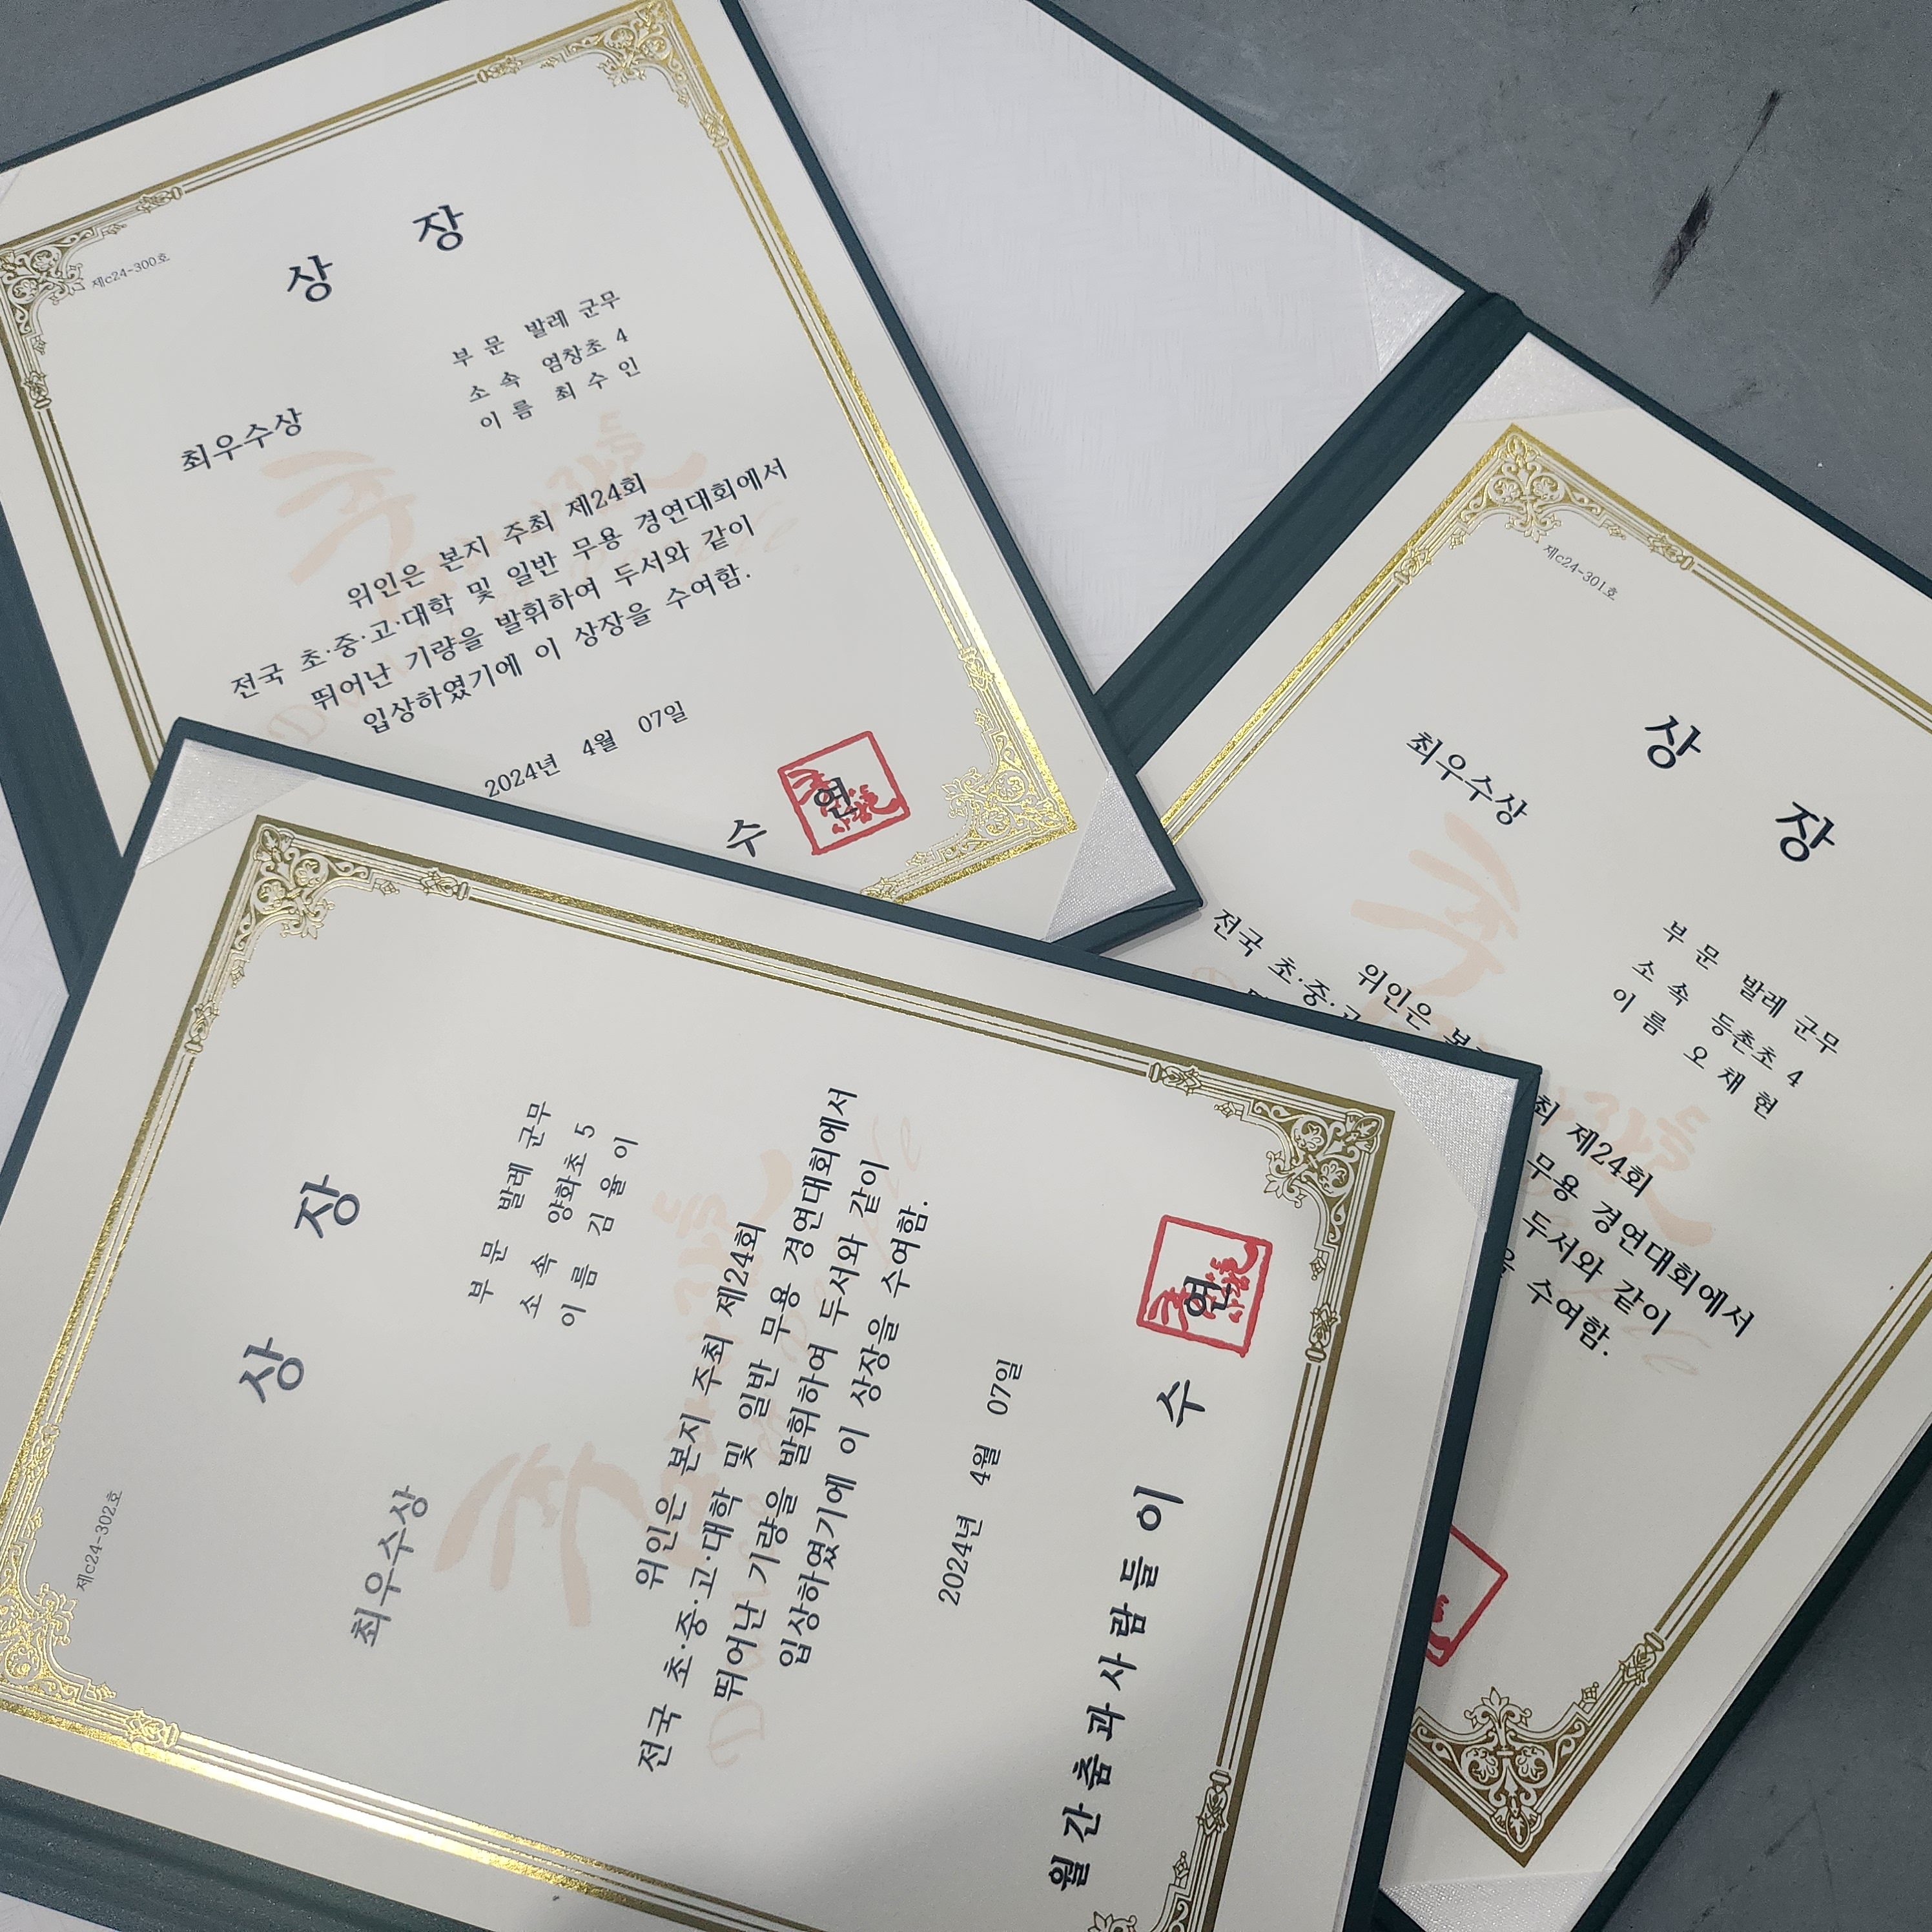 제c24-300호
상 장
부 문 발레 군무
소 속 염창초 4
이 름 최 수 인
최우수상
위인은 본지 주최 제24회
전국 초·중·고·대학 및 일반 무용 경연대회에서
뛰어난 기량을 발휘하여 두서와 같이
입상하였기에 이 상장을 수여함.
2024년 4월 07일
수 연
제c24-301호
상 장
최우수상
부 문 발레 군무
소 속 등촌초 4
이 름 오 채 현
위인은 최 제24회
전국 초·중· 무용 경연대회에서
두서와 같이
수여함.
제c24-302호
상 장
부 문 발레 군무
소 속 양화초 5
이 름 김 율 이
최우수상
위인은 본지 주최 제24회
전국 초·중·고·대학 및 일반 무용 경연대회에서
뛰어난 기량을 발휘하여 두서와 같이
입상하였기에 이 상장을 수여함.
2024년 4월 07일
월간춤과사람들이 수 연